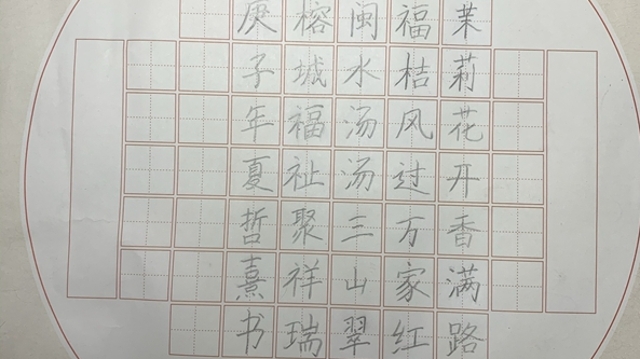 茉莉花开香满路
福桔风过万家红
闽水汤汤三山翠
榕城福祉聚祥瑞
庚子年夏哲熹书